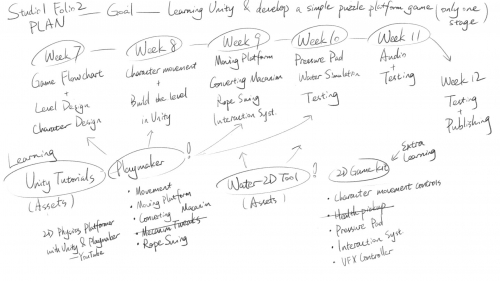 Studio1 Folio2 — Goal — Learning Unity & develop a simple puzzle platform game (only one stage)
PLAN
Week 7
Game Flowchart
+
Level Design
+
Character Design
Week 8
Character movement
+
Build the level
in Unity
Week 9
Moving Platform
Converting Macanism
Rope Swing
Interaction Syst.
Week 10
Pressure Pad
Water Simulation
Testing
Week 11
Audio
+
Testing
Week 12
Testing
+
Publishing
Learning
Unity Tutorials
(Assets)
2D Physics Platformer
with Unity & Playmaker
— YouTube
Playmaker
!
• Movement
• Moving Platform
• Converting Macanism
• Rope Swing
Water 2D Tool
!
(Assets)
2D Game kit
Extra
Learning
• Character movement controls
• Health pickup
• Pressure Pad
• Interaction Syst
• VFX Controller